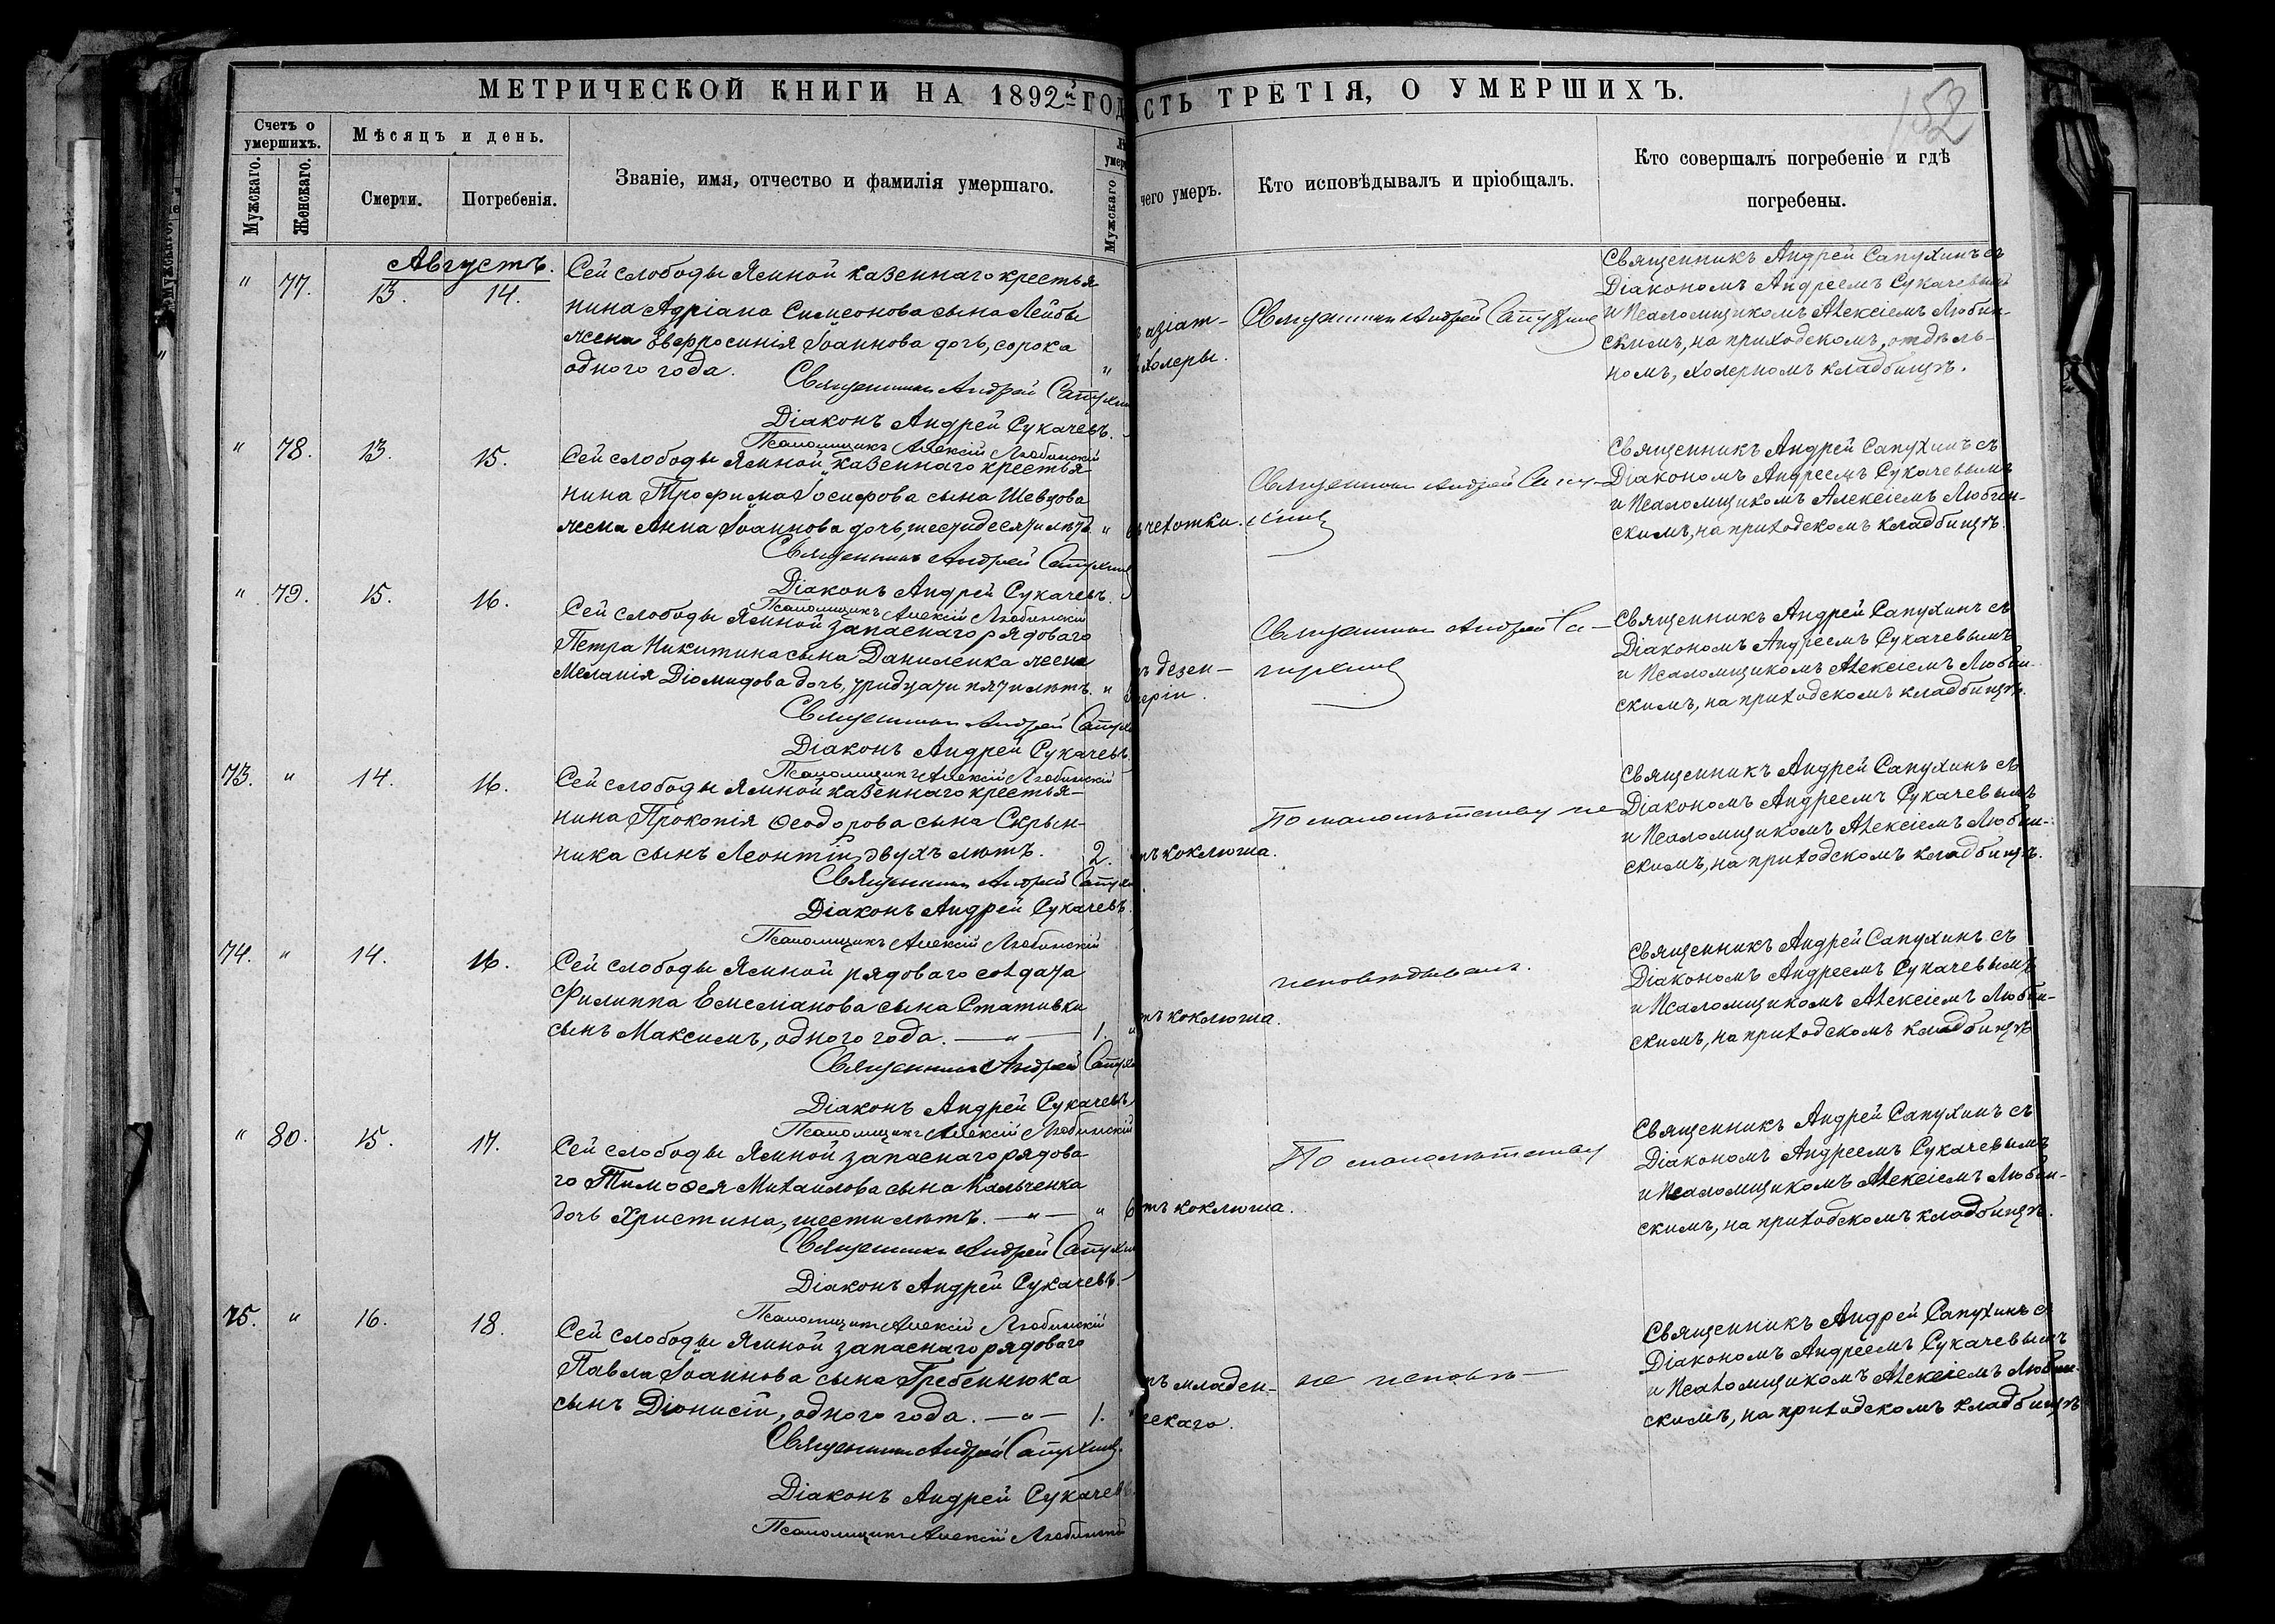 МЕТРИЧЕСКОЙ КНИГИ НА 1892й ГОД
Счетъ о умершихъ.
Мужскаго.
Женскаго.
Мѣсяцъ и день.
Смерти.
Погребенія.
Званіе, имя, отчество и фамилія умершаго.
умер
Мужскаго
Августъ.
" 77. 13. 14.
Сей слободы Ямной казеннаго крестья-
нина Адріана Симеонова сына Лейбы
жена Евфросинія Іоаннова дочь, сорока
одного года. "
Священникъ Андрей Сапухин
Діаконъ Андрей Сукачевъ.
Псаломщикъ Алексій Любинскій
" 78. 13. 15.
Сей слободы Ямной казеннаго крестья-
нина Трофима Іосифова сына Шевцова
жена Анна Іоаннова дочь, шестидесяти лѣтъ "
Священникъ Андрей Сапухинъ
Діаконъ Андрей Сукачевъ.
Псаломщикъ Алексій Любинскій
" 79. 15. 16.
Сей слободы Ямной запаснаго рядоваго
Петра Никитина сына Даниленка жена
Меланія Діомидова дочь, тридцати пяти лѣтъ. "
Священникъ Андрей Сапухи
Діаконъ Андрей Сукачевъ
Псаломщикъ Алексій Любинскій
73. " 14. 16.
Сей слободы Ямной казеннаго крестья-
нина Прокопія Ѳеодорова сына Скрын-
ника сынъ Леонтій, двухъ лѣтъ. 2.
Священникъ Андрей Сапухи
Діаконъ Андрей Сукачевъ.
Псаломщикъ Алексій Любинскій
74. " 14. 16.
Сей слободы Ямной рядоваго солдата
Филиппа Емеліанова сына Стативки
сынъ Максимъ, одного года. — " — 1.
Священникъ Андрей Сапухи
Діаконъ Андрей Сукачевъ
Псаломщикъ Алексій Любинскій
" 80. 15. 17.
Сей слободы Ямной запаснаго рядова-
го Тимоѳея Михаилова сына Кальченка
дочь Христина, шести лѣтъ. — " — " 6
Священникъ Андрей Сапухи
Діаконъ Андрей Сукачевъ.
Псаломщикъ Алексій Любинскій
75. " 16. 18.
Сей слободы Ямной запаснаго рядоваго
Павла Іоаннова сына Гребенюка
сынъ Діонисій, одного года. — " — 1.
Священникъ Андрей Сапухинъ.
Діаконъ Андрей Сукачевъ.
Псаломщикъ Алексій Любинскій
СТЬ ТРЕТІЯ, О УМЕРШИХЪ.
152
чего умеръ.
Кто исповѣдывалъ и пріобщалъ.
Кто совершалъ погребеніе и гдѣ
погребены.
азіат-
холеры.
Священникъ Андрей Сапухинъ
Священникъ Андрей Сапухинъ съ
Діакономъ Андреемъ Сукачевымъ
и Псаломщикомъ Алексіемъ Любин-
скимъ, на приходскомъ, отдѣль-
номъ, холерномъ кладбищѣ.
чехотки.
Священникъ Андрей Сапу-
хинъ
Священникъ Андрей Сапухинъ съ
Діакономъ Андреемъ Сукачевымъ
и Псаломщикомъ Алексіемъ Любин-
скимъ, на приходскомъ кладбищѣ.
ъ дезен-
теріи.
Священникъ Андрей Са-
пухинъ
Священникъ Андрей Сапухинъ съ
Діакономъ Андреемъ Сукачевымъ
и Псаломщикомъ Алексіемъ Любин-
скимъ, на приходскомъ кладбищѣ.
тъ коклюша.
По малолѣтству не
Священникъ Андрей Сапухинъ съ
Діакономъ Андреемъ Сукачевымъ
и Псаломщикомъ Алексіемъ Любин-
скимъ, на приходскомъ кладбищѣ.
тъ коклюша.
исповѣдывалъ.
Священникъ Андрей Сапухинъ съ
Діакономъ Андреемъ Сукачевымъ
и Псаломщикомъ Алексіемъ Любин-
скимъ, на приходскомъ кладбищѣ
тъ коклюша.
По малолѣтству
Священникъ Андрей Сапухинъ съ
Діакономъ Андреемъ Сукачевымъ
и Псаломщикомъ Алексіемъ Любин-
скимъ, на приходскомъ кладбищѣ.
тъ младен-
ческаго.
не исповѣ-
Священникъ Андрей Сапухинъ съ
Діакономъ Андреемъ Сукачевымъ
и Псаломщикомъ Алексіемъ Любин-
скимъ, на приходскомъ кладбищѣ